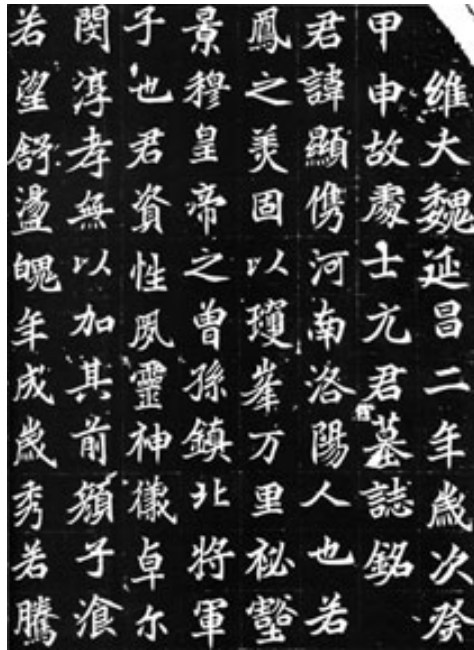 維大魏延昌二年歲次癸
甲申故處士元君墓誌銘
君諱顯儁河南洛陽人也若
鳳之羙固以瓊峯万里祕壑
景穆皇帝之曾孫鎮北將軍
子也君資性夙靈神儀卓尓
閔淳孝無以加其前顏子湌
若望舒盪魄年成歲秀若騰